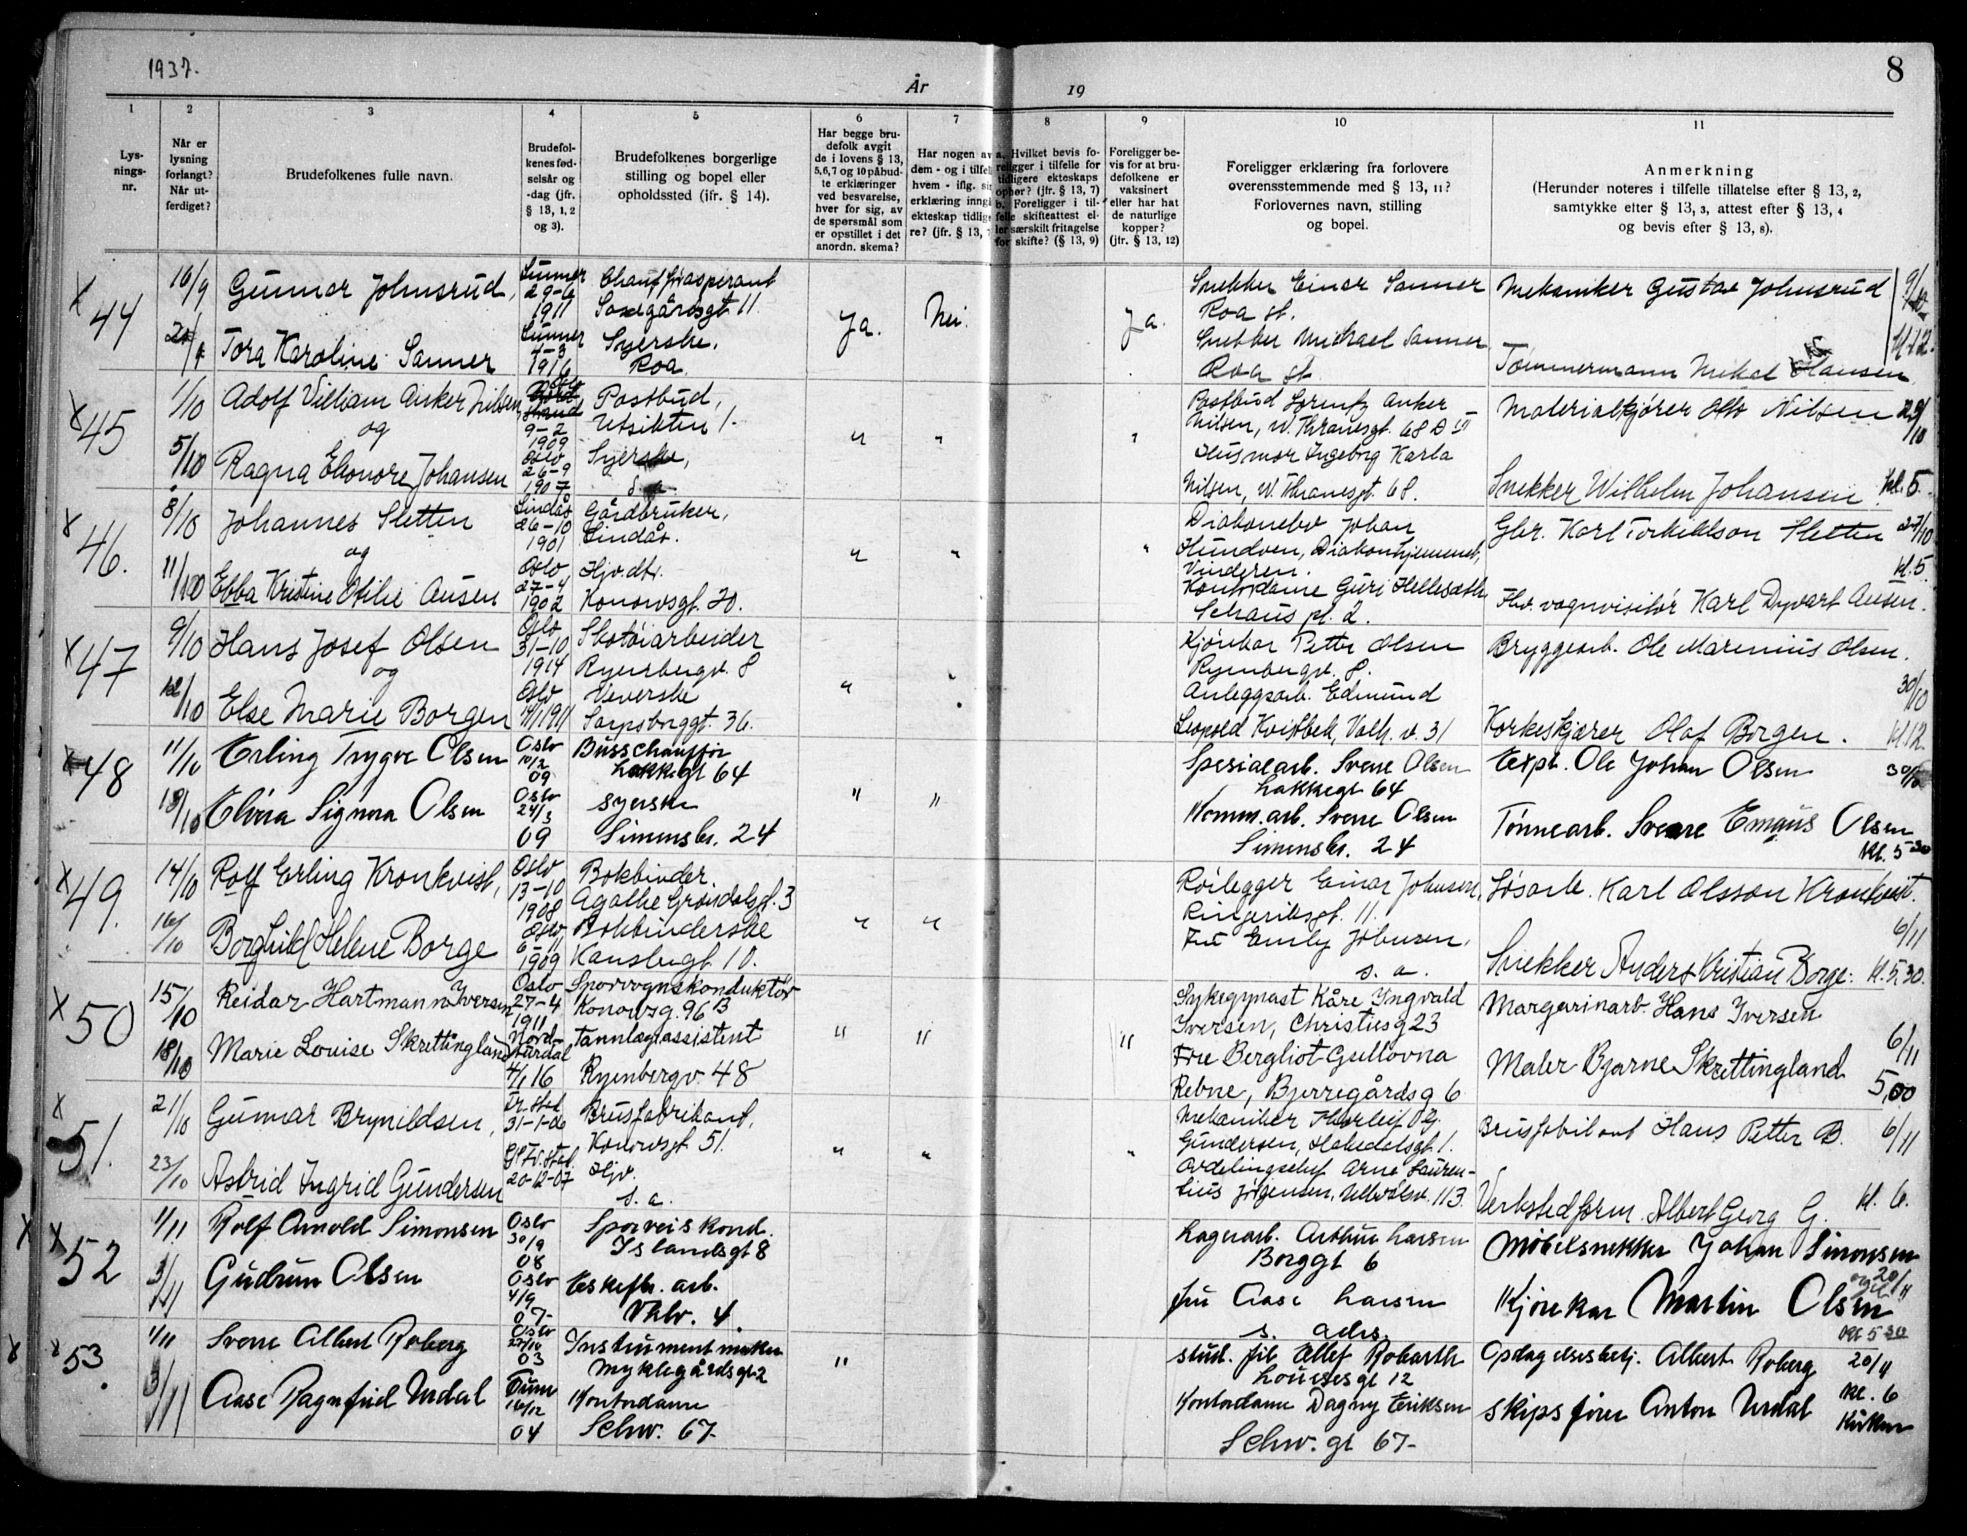 1937.
År
19
8
1
2
3
4
5
6
7
8
9
10
11
Lys-
nings-
nr.
Når er
lysning
forlangt?
Når ut-
ferdiget?
Brudefolkenes fulle navn.
Brudefol-
kenes fød-
selsår og
-dag (jfr.
§ 13, 1, 2
og 3).
Brudefolkenes borgerlige
stilling og bopel eller
opholdssted (jfr. § 14).
Har begge bru-
defolk avgit
de i lovens § 13,
5, 6, 7 og 10 påbud-
te erklæringer
ved besvarelse,
hver for sig, av
de spørsmål som
er opstillet i det
anordn. skema?
Har nogen av
dem - og i tilfel
hvem - iflg. sin
erklæring inngå
ekteskap tidlige
re? (jfr. § 13, 7
a. Hvilket bevis fo-
religger i tilfelle for
tidligere ekteskaps
ophør? (jfr. § 13, 7)
b. Foreligger i til-
felle skifteattest el-
ler særskilt fritagelse
for skifte? (§ 13, 9)
Foreligger be-
vis for at bru-
defolkene er
vaksinert
eller har hat
de naturlige
kopper?
(jfr. § 13, 12)
Foreligger erklæring fra forlovere
overensstemmende med § 13, 11?
Forlovernes navn, stilling
og bopel.
Anmerkning
(Herunder noteres i tilfelle tillatelse efter § 13, 2,
samtykke efter § 13, 3, attest efter § 13, 4
og bevis efter § 13, 8).
x 44
16/9
Gunnar Johnsrud,
Lunner
29-6
1911
Ja.
Nei.
Ja.
Snekker Einar Sanner
Roa st.
Mekaniker Gustav Johnsrud
Tora Karoline Sanner
Lunner
4-3
1916
Syerske.
Roa
Snekker Michael Sanner
Roa st.
Tømmermann Mikal Hansen
kl. 12.
x 45
1/10
Adolf Villiam Anker Nilsen
og
9-2
1909
Postbud,
Utsikten 1.
"
"
"
Postbud Lorentz Anker
Nilsen, W. Thranesgt. 68
Materialkjører Otto Nilsen
5/10
Ragna Elionore Johansen
Oslo
26-9
1907
Syerske,
s. a.
Husmor Ingeborg Karla
Nilsen, W. Thranesgt. 68.
Snekker Wilhelm Johansen
kl. 5.
x 46.
8/10
Johannes Sletten
og
Lindås
26-10
1901
Gårdbruker,
Lindås.
"
"
"
Diakonelev Johan
Hundven, Diakonhjemmet,
Vinderen.
Gbr. Karl Torkildson Sletten
27/10
kl. 5.
11/10
Ebba Kristine Otilie Ausen
Oslo
27-4
1902
Hjv. dtr.
Konowsgt. 20.
Kontordame Guri Hellesæth
Schous pl. 2.
Fhv. vognvisitør Karl Dyvart Ausen.
x 47
9/10
Hans Josef Olsen
og
Oslo
31-10
1914
Skotøiarbeider
Ryenbergv. 8
"
"
Kjørekar Petter Olsen
Ryenbergv. 8.
Bryggearb. Ole Marenius Olsen.
30/10
12/10
Else Marie Borgen
Oslo
Veverske
Sarpsborggt. 36.
Anleggsarb. Edmund
Leopold Kvistbek, Valh. v. 31
Korkeskjærer Olaf Borgen.
kl. 12
x 48
11/10
Erling Trygve Olsen
Oslo
10/2
09
Busschauffør
Lakkegt 64
"
"
Spesialarb. Sverre Olsen
Lakkegt 64
Exp. Ole Johan Olsen
13/10
Elvira Signora Olsen
Oslo
24/3
09
syerske
Simensbr. 24
Komm. arb. Sverre Olsen
Simensbr. 24
Tønnearb. Sverre Emaus Olsen
Kl. 5 30
x 49.
14/10
Rolf Erling Kronkvist,
Oslo
13-10
1908
Bokbinder.
Agathe Grøndalsgt. 3
"
"
Rørlegger Einar Johnsen,
Ringeriksgt. 11.
Løsarb. Karl Olsson Kronkvist.
6/11
16/10
Borghild Helene Borge
Oslo
6-11
1909
Bokbinderske
Kanslergt. 10.
Fru Emily Johnsen,
s. a.
Snekker Anders Kristian Borge.
kl. 5,30.
x 50
15/10
Reidar Hartmann Iversen
Oslo
27-4
1911
Sporvognskonduktør
Konowsg. 96 B
"
"
"
Sykegymast Kåre Yngvald
Iversen, Christiesg 23
Margarinarb. Hans Iversen
6/11
18/10
Marie Louise Skrettingland
4/1 16
Tannlægeassistent
Ryenbergv. 48
Frue Bergliot Gsellovna
Rebne, Bjerregårdsg 6
Maler Bjarne Skrettingland
5,00
x 51.
21/10
Gunnar Brynildsen,
31-1-06
Brusfabrikant,
Konowsgt 51.
"
"
"
Mekaniker Thorleif
Gundersen, Hakedalsgt. 1.
Brusfabrikant Hans Petter B.
6/11
23/10
Astrid Ingrid Gundersen
20-12-07
Hjv.
s. a.
Avdelingschef Arne Lauren-
tius Jørgensen, Ullevålsv. 113.
Verkstedform. Albert Georg G.
kl. 6.
x x 52
1/11
Rolf Arnold Simonsen
Oslo
30/9
08
Sporveiskond.
Islandsgt 8
Lagerarb. Arthur Larsen
Borggt 6
Møbelsnekker Johan Simonsen
20/11
3/11
Gudrun Olsen
Oslo
4/9
07-
Eskefbr. arb.
Vhlv. 4
Fru Aase Larsen
s. adrs.
Kjørekar Martin Olsen
Kl 5 30
x x 53.
1/11
Sverre Albert Roberg
Oslo
03
Instrumentmaker
Myklegårdsgt 2
"
stud. fil Ellef Robarth
Louisesgt 12
Opdagelsesbetj. Albert Roberg
20/11
kl. 6
3/11
Aase Ragnfrid Urdal
16/12
04
Kontordame
Schw. 67-
Kontordame Dagny Eriksen
Schw. gt 67-
Skipsfører Anton Urdal
Kirken